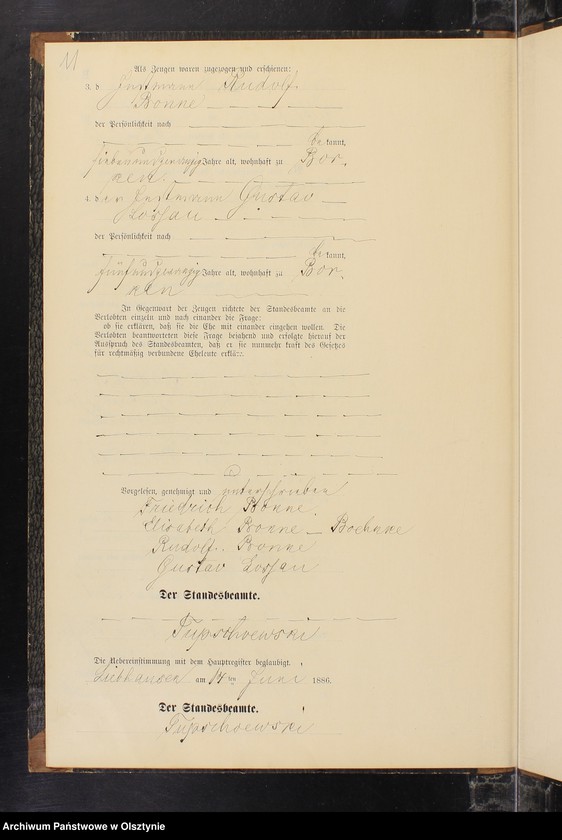 11
Als Zeugen waren zugezogen und erschienen:
Instmann Rudolf
Bonne
der Persönlichkeit nach
be kannt,
siebenundzwanzig Jahre alt, wohnhaft zu Bor-
ken.
4. der Instmann Gustav
Lossau
der Persönlichkeit nach
be kannt,
fünfundzwanzig Jahre alt, wohnhaft zu Bor-
ken
In Gegenwart der Zeugen richtete der Standesbeamte an die
Verlobten einzeln und nach einander die Frage:
ob sie erklären, daß sie die Ehe mit einander eingehen wollen. Die
Verlobten beantworteten diese Frage bejahend und erfolgte hierauf der
Ausspruch des Standesbeamten, daß er sie nunmehr kraft des Gesetzes
für rechtmäßig verbundene Eheleute erkläre.
Vorgelesen, genehmigt und unterschrieben
Friedrich Bonne.
Elisabeth Bonne – Boehnke
Rudolf Bonne
Gustav Lossau
Der Standesbeamte.
Tupschoewski
Die Uebereinstimmung mit dem Hauptregister beglaubigt.
am 14 ten Juni 1886.
Der Standesbeamte.
Tupschoewski
Archiwum Państwowe w Olsztynie